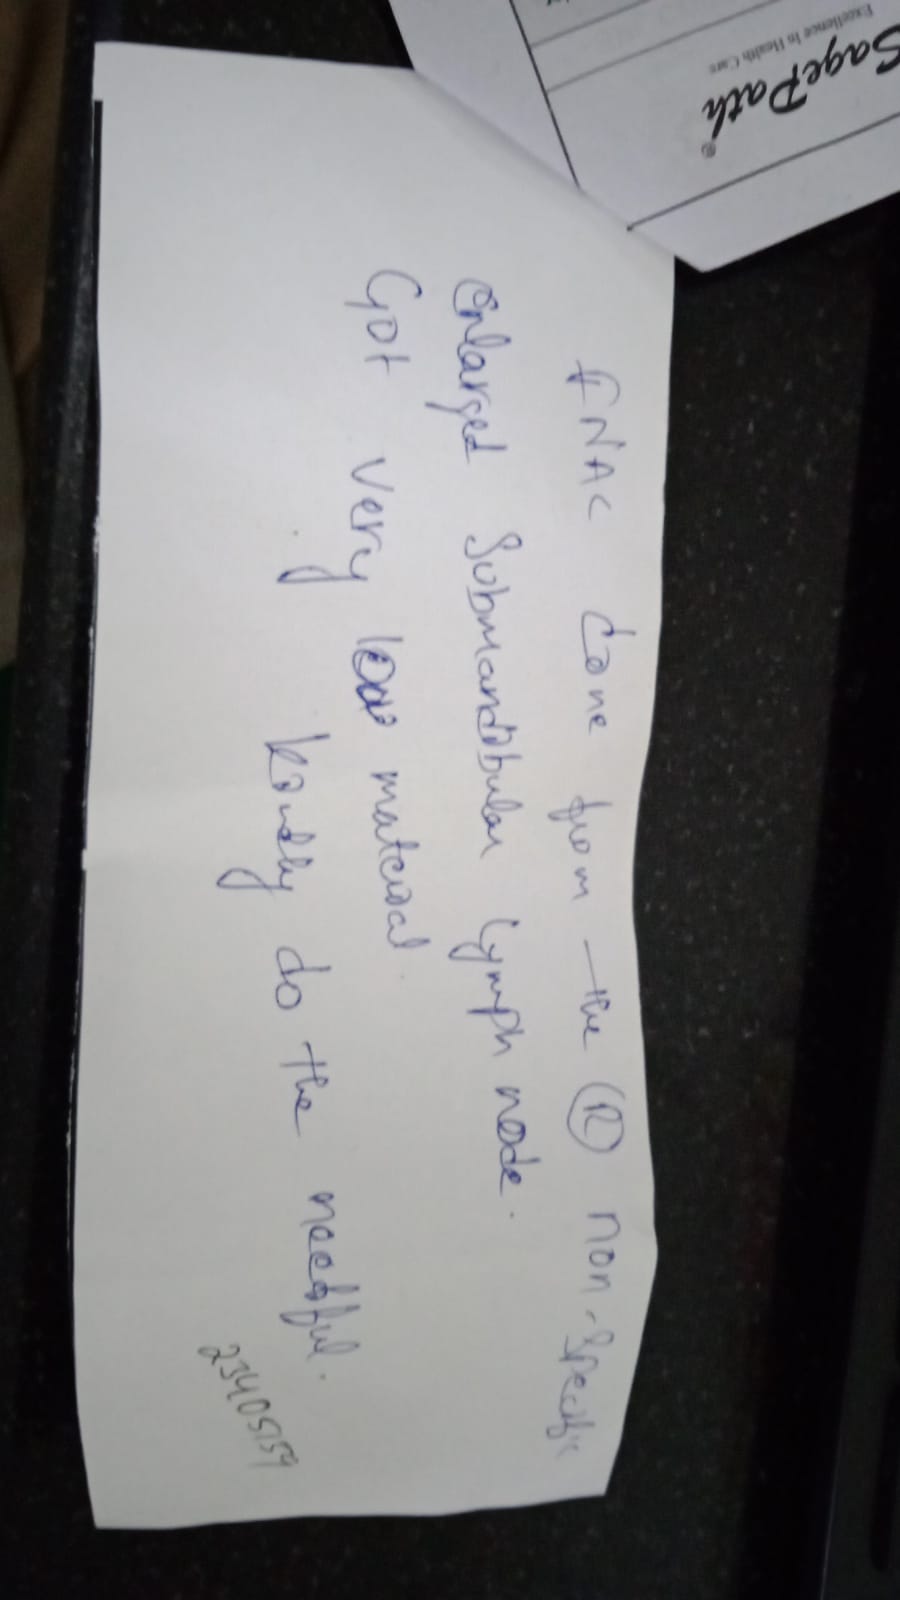 SagePath
Excellence In Health Care
FNAC done from the (R) non-specific
enlarged submandibular lymph node.
Got very low material.
kindly do the needful.
23405159